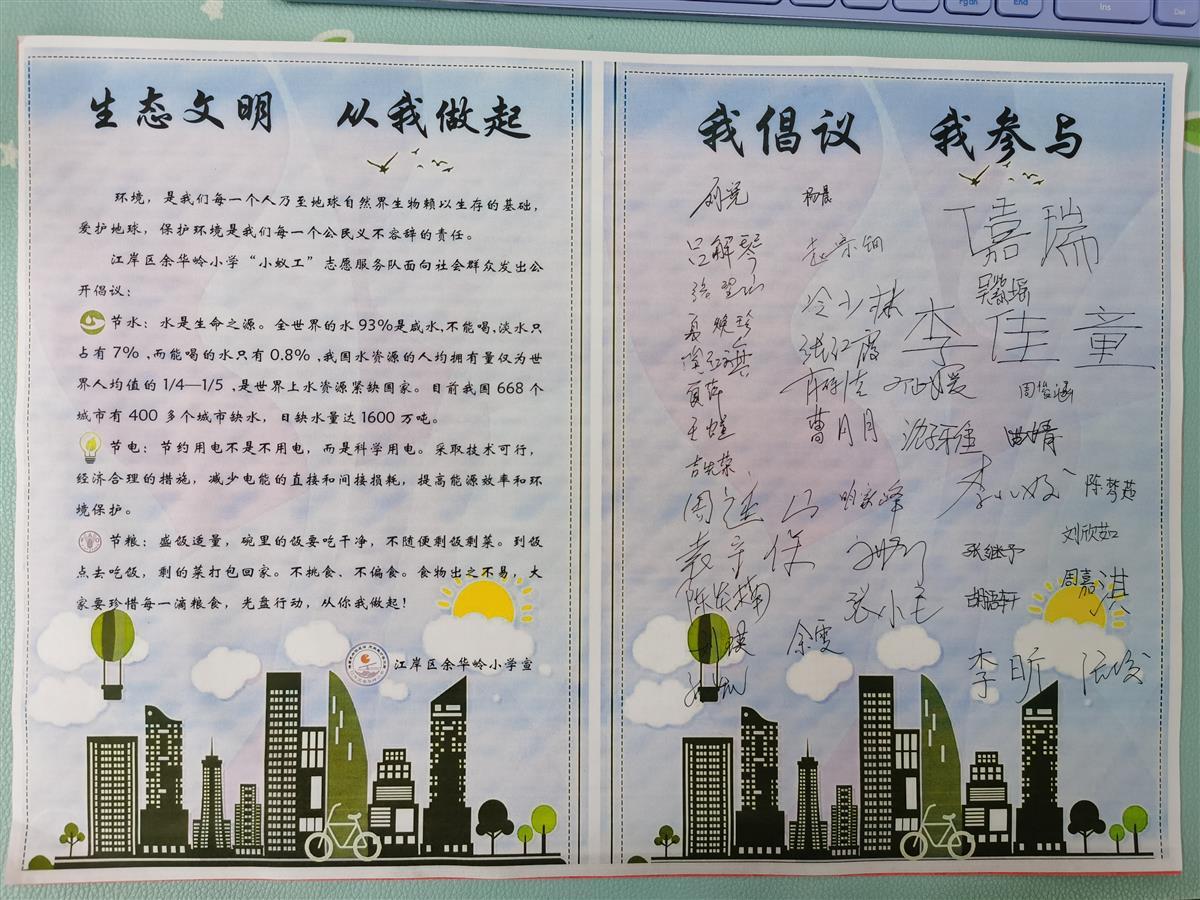 生态文明 从我做起
环境，是我们每一个人乃至地球自然界生物赖以生存的基础，
爱护地球，保护环境是我们每一个公民义不容辞的责任。
江岸区余华岭小学“小蚁工”志愿服务队面向社会群众发出公
开倡议：
节水：水是生命之源。全世界的水93%是咸水，不能喝，淡水只
占有7%，而能喝的水只有0.8%，我国水资源的人均拥有量仅为世
界人均值的1/4—1/5，是世界上水资源紧缺国家。目前我国668个
城市有400多个城市缺水，日缺水量达1600万吨。
节电：节约用电不是不用电，而是科学用电。采取技术可行，
经济合理的措施，减少电能的直接和间接损耗，提高能源效率和环
境保护。
节粮：盛饭适量，碗里的饭要吃干净，不随便剩饭剩菜。到饭
点去吃饭，剩的菜打包回家。不挑食、不偏食。食物出之不易，大
家要珍惜每一滴粮食，光盘行动，从你我做起！
江岸区余华岭小学宣
我倡议 我参与
杨晨
丁嘉瑞
吕解琴
李佳童
夏焕珍
冷少林
张红霞
夏萍
周俊涵
曹月月
曲婧
吉先荣
陈梦茹
明家峰
刘欣茹
张继予
周嘉淇
张小毛
胡语轩
余雯
李昕
Ins
Del
End
PgDn